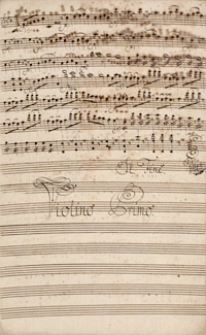 Il Fine
Violino Primo